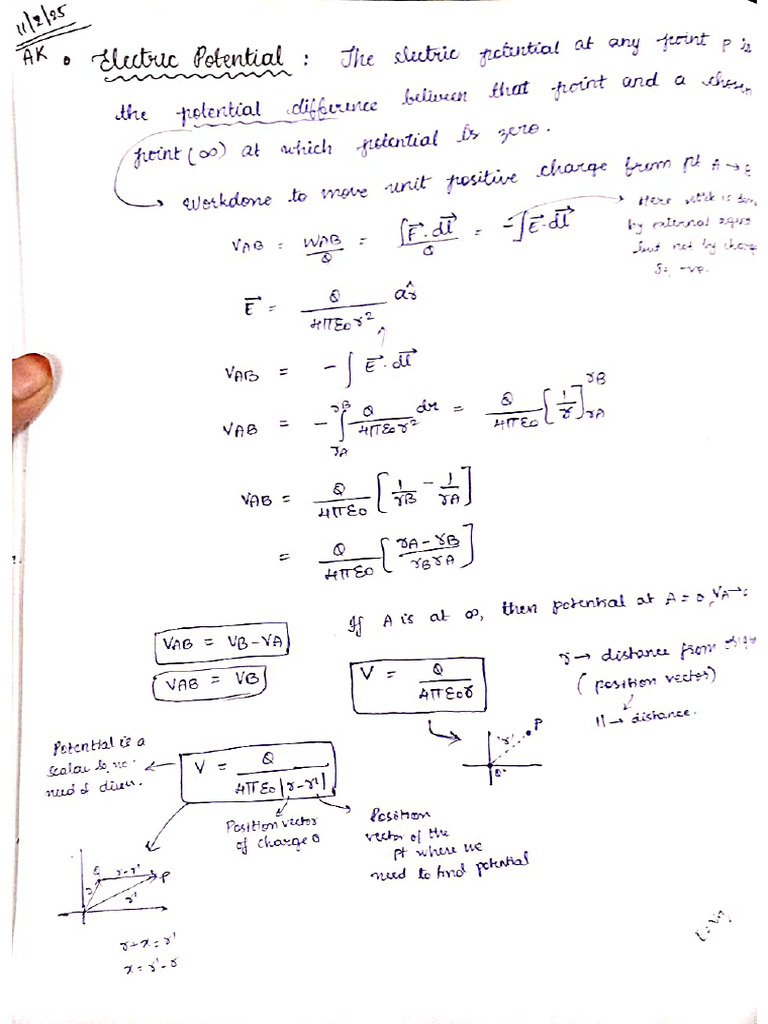 11/2/25
AK • Electric Potential : The electric potential at any point P is
the potential difference between that point and a chosen
point (∞) at which potential is zero.
→ Workdone to move unit positive charge from pt A →
VAB = WAB/Q = ∫F.dl/Q = -∫E.dl
→ Here work is done
by external agent
but not by charge
So -ve.
E = Q/4πε0r² ar
VAB = -∫E.dl
VAB = -∫rA rB Q/4πε0r² dr = Q/4πε0 [1/r]rA rB
VAB = Q/4πε0 [1/rB - 1/rA]
= Q/4πε0 [rA-rB/rBrA]
If A is at ∞, then potential at A = 0, VA →
VAB = VB-VA
VAB = VB
V = Q/4πε0r
r → distance from
(position vector)
|| → distance.
'r' P
Potential is a
scalar so no
need of direc.
V = Q/4πε0|r-r'|
Position vector
of charge Q
Position
vector of the
pt where we
need to find potential
r-r' P
r r'
r+x=r'
x=r'-r